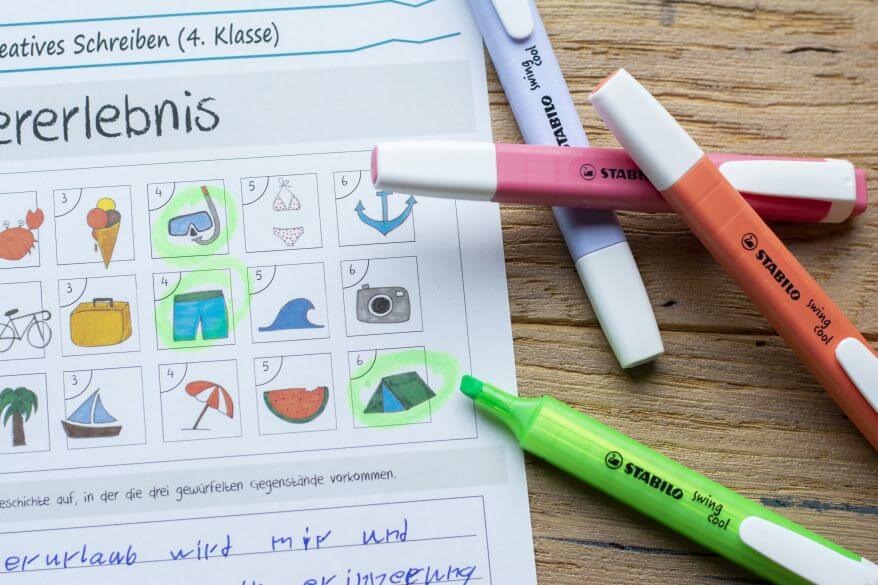 eatives Schreiben (4. Klasse)
ererlebnis
3 4 5 6
3 4 5 6
3 4 5 6
eschichte auf, in der die drei gewürfelten Gegenstände vorkommen.
erurlaub wird mir und
swing cool
STABILO
STABI
STABILO swing cool
STABILO swing cool